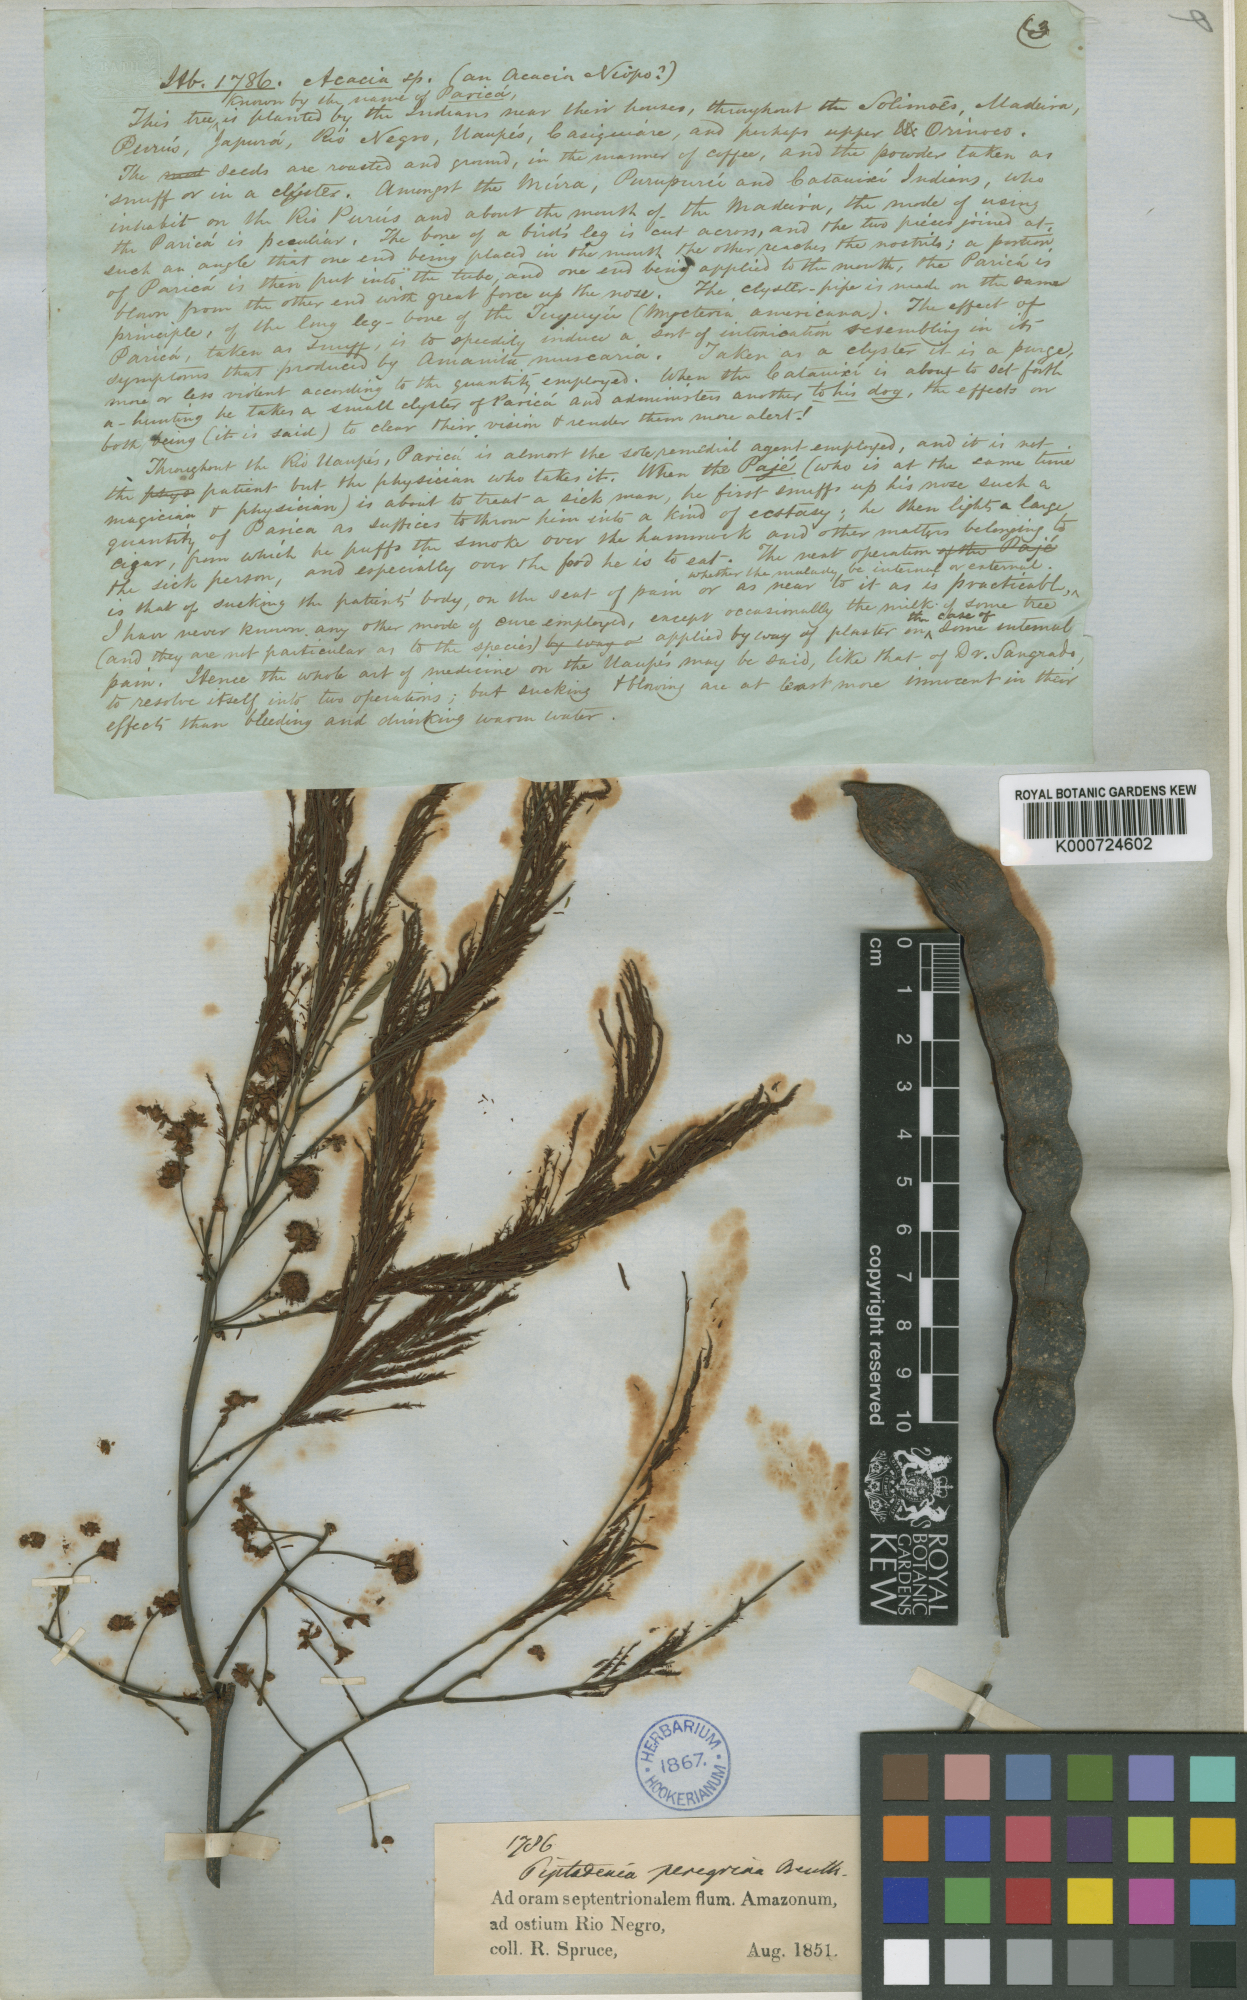 (3
Hb. 1786. Acacia sp. (an Acacia Niopo?)
known by the name of Paricá,
This tree is planted by the Indians near their houses, throughout the Solimoẽs, Madeira,
Purús, Japurá, Rió Negro, Uaupés, Casiquiáre, and perhaps upper Orinoco.
The seeds are roasted and ground, in the manner of coffee, and the powder taken as
snuff or in a clyster. Amongst the Múra, Purupurú and Catauixí Indians, who
inhabit on the Rio Purús and about the mouth of the Madeira, the mode of using
the Paricá is peculiar. The bone of a bird's leg is cut across, and the two pieces joined at
such an angle that one end being placed in the mouth the other reaches the nostrils; a portion
of Paricá is then put into the tube, and one end being applied to the mouth, the Paricá is
blown from the other end with great force up the nose. The clyster-pipe is made on the same
principle, of the long leg-bone of the Tuyuyú (Mycteria americana). The effect of
Paricá, taken as snuff, is to speedily induce a sort of intoxication resembling in its
symptoms that produced by Amanita muscaria. Taken as a clyster it is a purge,
more or less violent according to the quantity employed. When the Catauixí is about to set forth
a-hunting he takes a small clyster of Paricá and administers another to his dog, the effects on
both being (it is said) to clear their vision & render them more alert!
Throughout the Rió Uaupés, Paricá is almost the sole remedial agent employed, and it is not
the phys patient but the physician who takes it. When the Pajé (who is at the same time
magician & physician) is about to treat a sick man, he first snuffs up his nose such a
quantity of Paricá as suffices to throw him into a kind of ecstasy; he then lights a large
cigar, from which he puffs the smoke over the hammock and other matters belonging to
the sick person, and especially over the food he is to eat. The next operation of the Pajé
whether the malady be internal or external.
is that of sucking the patient's body, on the seat of pain or as near to it as is practicable,
I have never known any other mode of cure employed, except occasionally the milk of some tree
the case of
(and they are not particular as to the species) by way of applied by way of plaster on some internal
pain. Hence the whole art of medicine on the Uaupés may be said, like that of Dr. Sangrado,
to resolve itself into two operations; but sucking & blowing are at least more innocent in their
effects than bleeding and drinking warm water.
ROYAL BOTANIC GARDENS KEW
K000724602
cm 0 1 2 3 4 5 6 7 8 9 10
copyright reserved
ROYAL
BOTANIC
GARDENS
KEW
HERBARIUM
1867.
HOOKERIANUM
1786
Piptadenia peregrina Benth.
Ad oram septentrionalem flum. Amazonum,
ad ostium Rio Negro,
coll. R. Spruce, Aug. 1851.